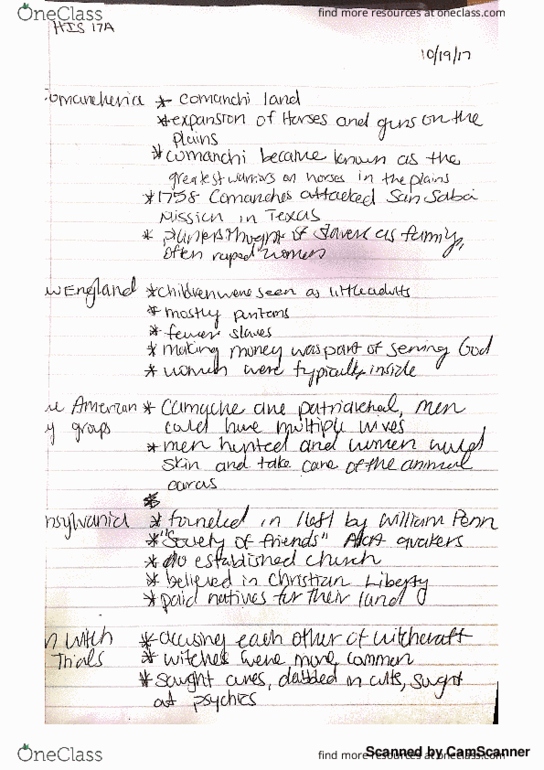 OneClass
find more resources at oneclass.com
HIS 17A
10/19/17
omancheria * comanchi land
* expansion of Horses and guns on the
plains
* comanchi became known as the
greatest warriors on horses in the plains
* 1758 Comanches attacked San Saba
Mission in Texas
* planters thought of slaves as family,
often raped women
w England * children were seen as little adults
* mostly
* fewer slaves
* making money was part of serving God
* women were typically inside
ve American * are patriarchal, men
could have multiple wives
y groups
* men hunted and women would
skin and take care of the animal
*
nsylvania * founded in by William Penn
* "Society of friends" AKA quakers
* no established church
* believed in Christian Liberty
* paid natives for their land
m witch * accusing each other of witchcraft
Trials * witches were more common
* sought cures, dabbled in cults, sought
psychics
OneClass
find more resources at oneclass.com
Scanned by CamScanner